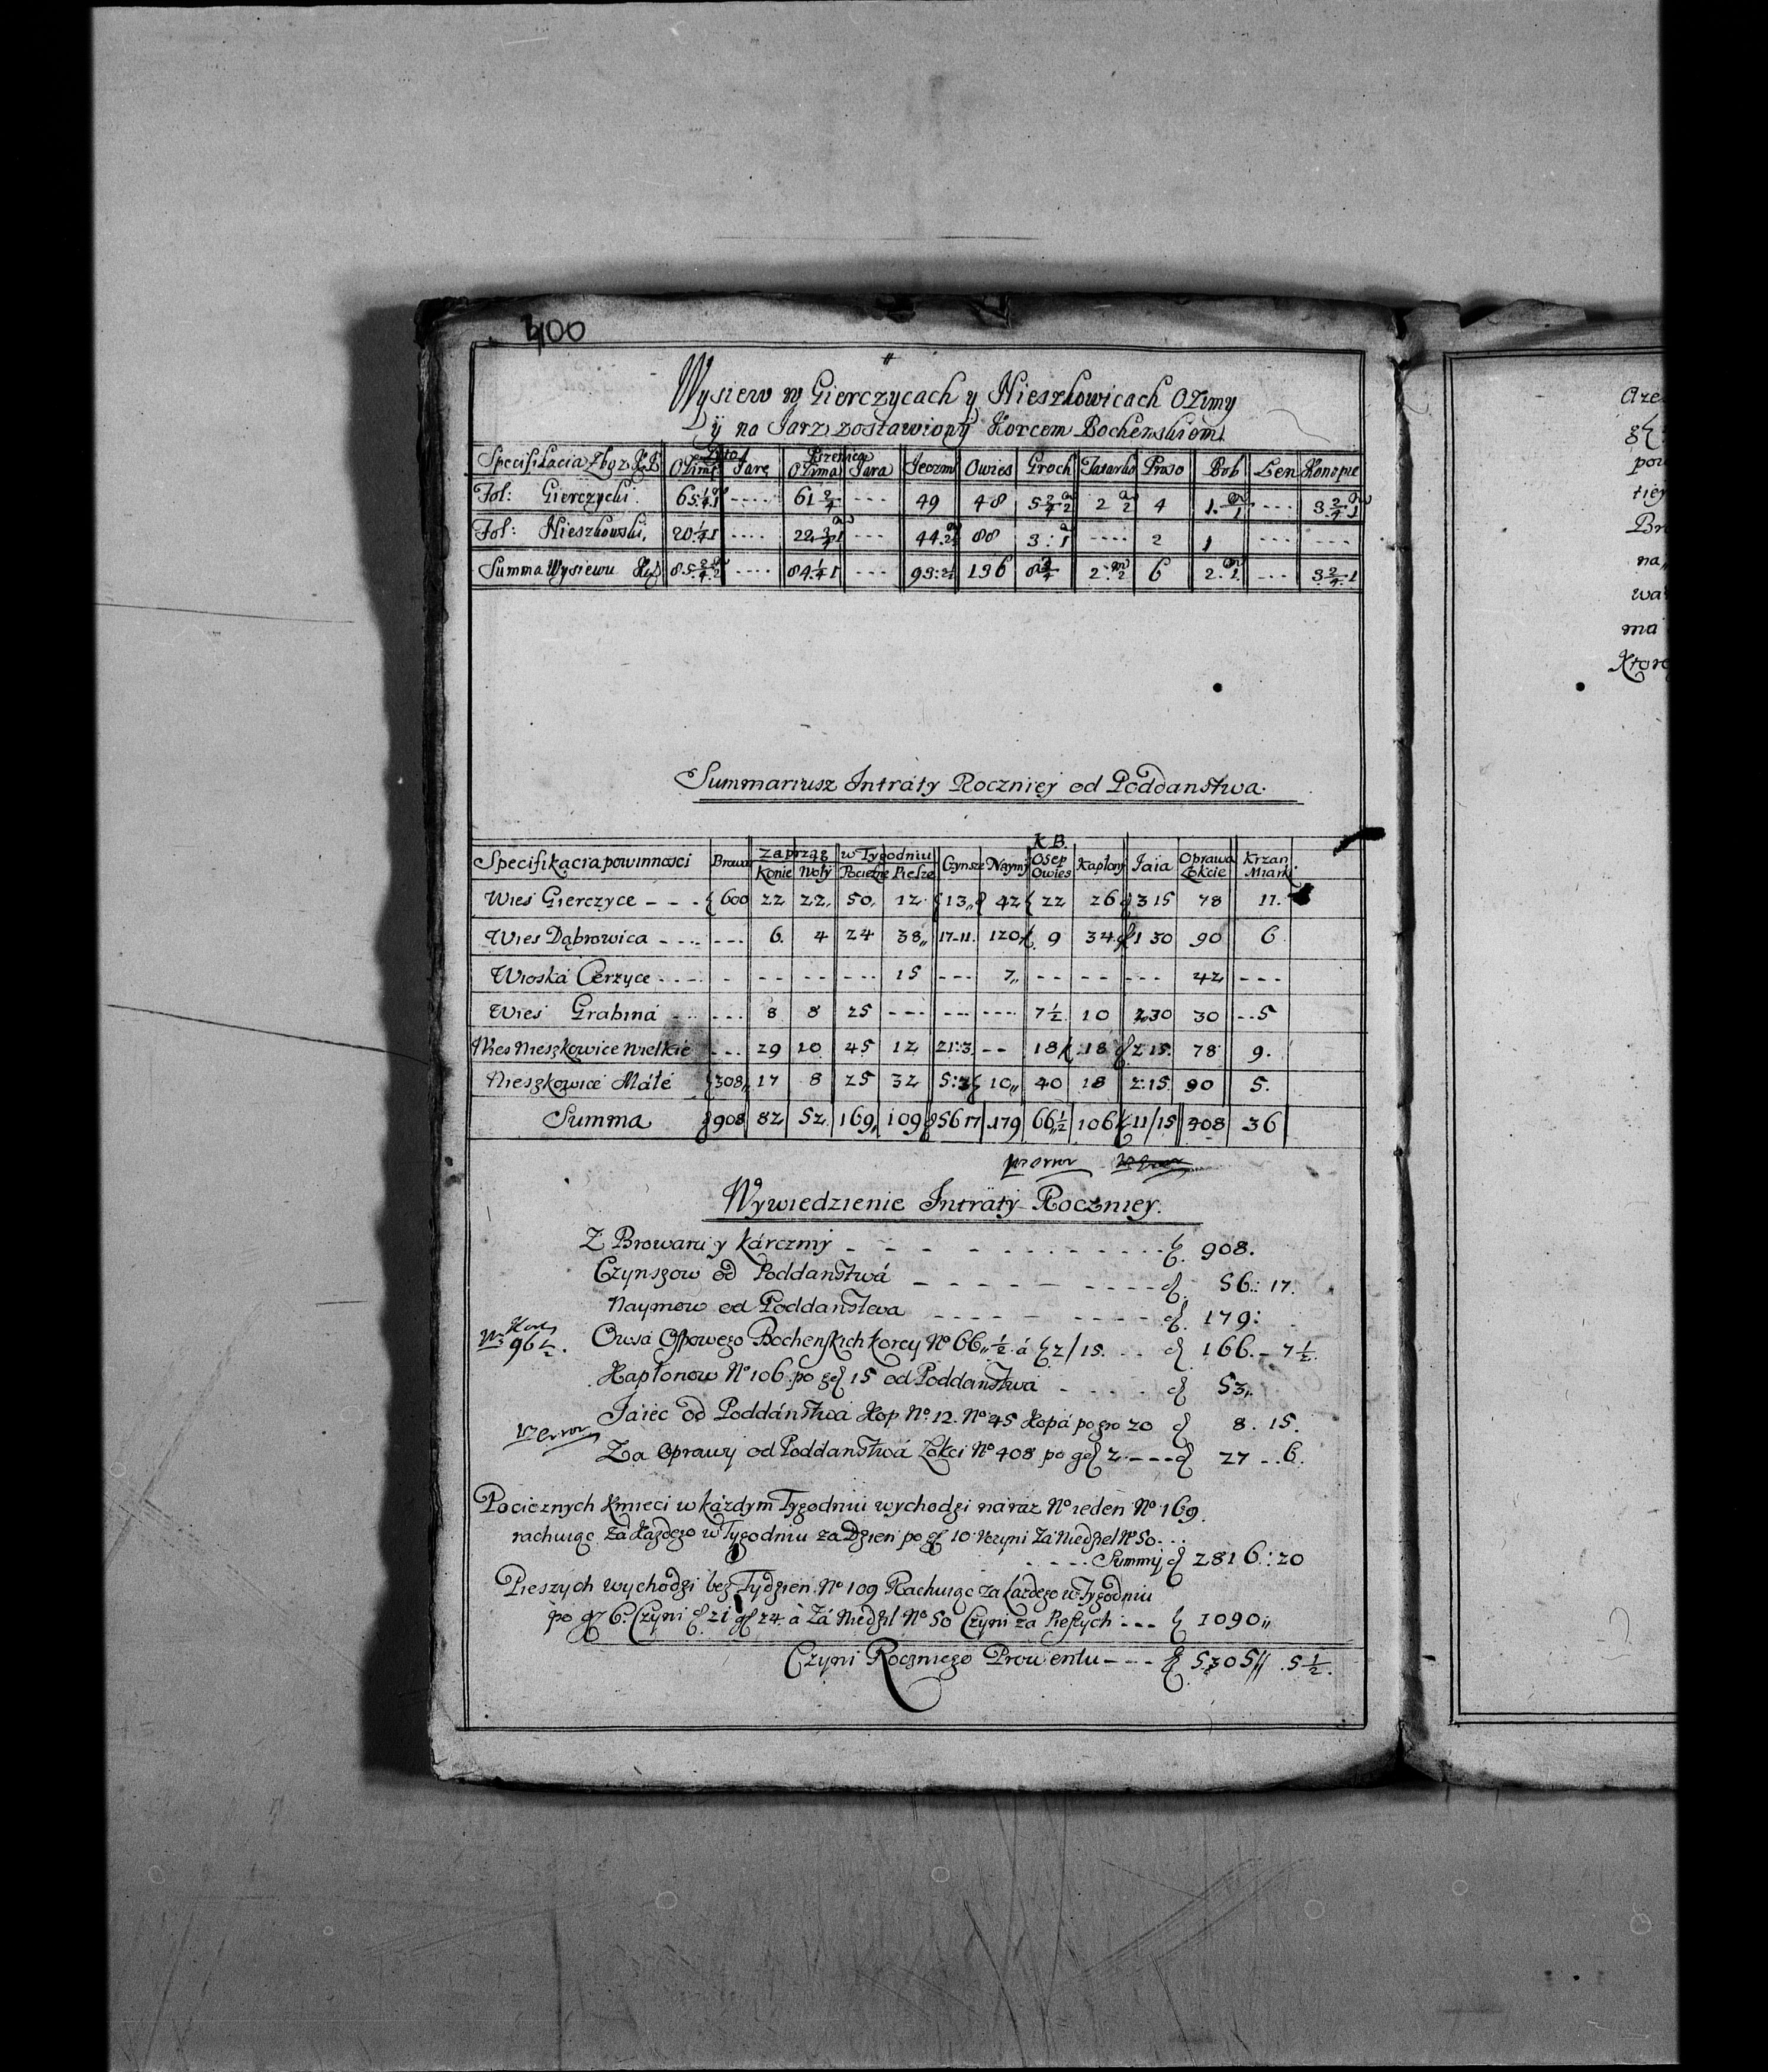 400
Wysiew w Gierczycach y Nieszkowicach Ozimy
ÿ na Jarz zostawiony Korcem Bochenskiem
Specifikacia Zboz KB | Zyto Ozime | Jare | Pszenica Ozima | Jara | Jeczm | Owies | Groch | Tatarka | Proso | Bob | Len | Konopie
Fol: Gierczycki | 65 1/4 1 | ---- | 61 2/4 | --- | 49 | 48 | 5 2/4 2 | 2 2 | 4 | 1. 1 | --- | 3 2/4 1
Fol: Nieszkowski, | 20 1/4 1 | ---- | 22 3/4 1 | --- | 44. 2 | 88 | 3 : 1 | ---- | 2 | 1 | --- | ---
Summa Wysiewu KB | 85 2/4 2 | ---- | 84 1/4 1 | --- | 93: 2 | 136 | 8 3/4 | 2. 2 | 6 | 2. 1. | --- | 3 2/4 1
Summariusz Intráty Roczniey od Poddanstwa.
K B.
Specifikacia powinnosci | Browar | Zaprząg Konie | Woły | w Tygodniu Pocięzne | Piesze | Czynsze | Naymy | Osep Owies | Kapłony | Jaia | Oprawa Łokcie | Krzan Miarki
Wies Gierczyce - - - | 600 | 22 | 22. | 50. | 12. | 13,, | 42 | 22 | 26 | 3 15 | 78 | 11.
Wies Dąbrowica - - - - | --- | 6. | 4 | 24 | 38,, | 17-11. | 120 | 9 | 34 | 1 30 | 90 | 6
Wioská Cerzyce - - - - | - | -- | -- | --- | 15 | --- | 7,, | -- | -- | --- | 42 | ---
Wies Grabiná - - - | --- | 8 | 8 | 25 | --- | --- | ---- | 7 1/2 | 10 | 2.30 | 30 | --5
Wies Nieszkowice Wielkie | --- | 29 | 10 | 45 | 12 | 21:3 | -- | 18 | 18 | 2 15. | 78 | 9.
Nieszkowice Máłé | 308,, | 17 | 8 | 25 | 32 | 5:3 | 10,, | 40 | 18 | 2.15. | 90 | 5.
Summa | 908 | 82 | 52. | 169,, | 109 | 56 17 | 179 | 66,, 1/2 | 106 | 11/15 | 408 | 36
error
Wywiedzienie Intráty Roczniey.
Z Browaru y Kárczmÿ - - - - - - - - - - - 908.
Czynszow od Poddanstwá - - - - - - - - - 56:. 17.
Naymow od Poddanstwa - - - - - - - - 179:
Kor. No 96 1/2. Owsá Ospowego Bochenskich korcy No 66,, 1/2 á 2/15. - - 166. - 7 1/2.
Kapłonow No 106 po 15 od Poddanstwá - - - - 53,.
Jaiec od Poddánstwá Kop No 12. No 45 Kopá po gro 20 8. 15.
error
Za Oprawy od Poddanstwá Łokci No 408 po 2 - - - 27 - - 6.
Pocieznych Kmieci w káżdym Tygodniu wychodzi náraz No ieden No 169.
rachuiąc zá Kazdego w Tygodniu za Dzien po 10. Uczyni Zá Niedziel No 50 - - -
- - - - Summÿ 2816.: 20
Pieszych wychodzi bez Tydzien No 109 Rachuiąc za kazdego w Tygodniu
po 6. Czyni 21 24. á Zá Niedzil No 50 Czyni za Pieszych - - - 1090,,
Czyni Roczniego Prowentu - - - 5305// .5 1/2.